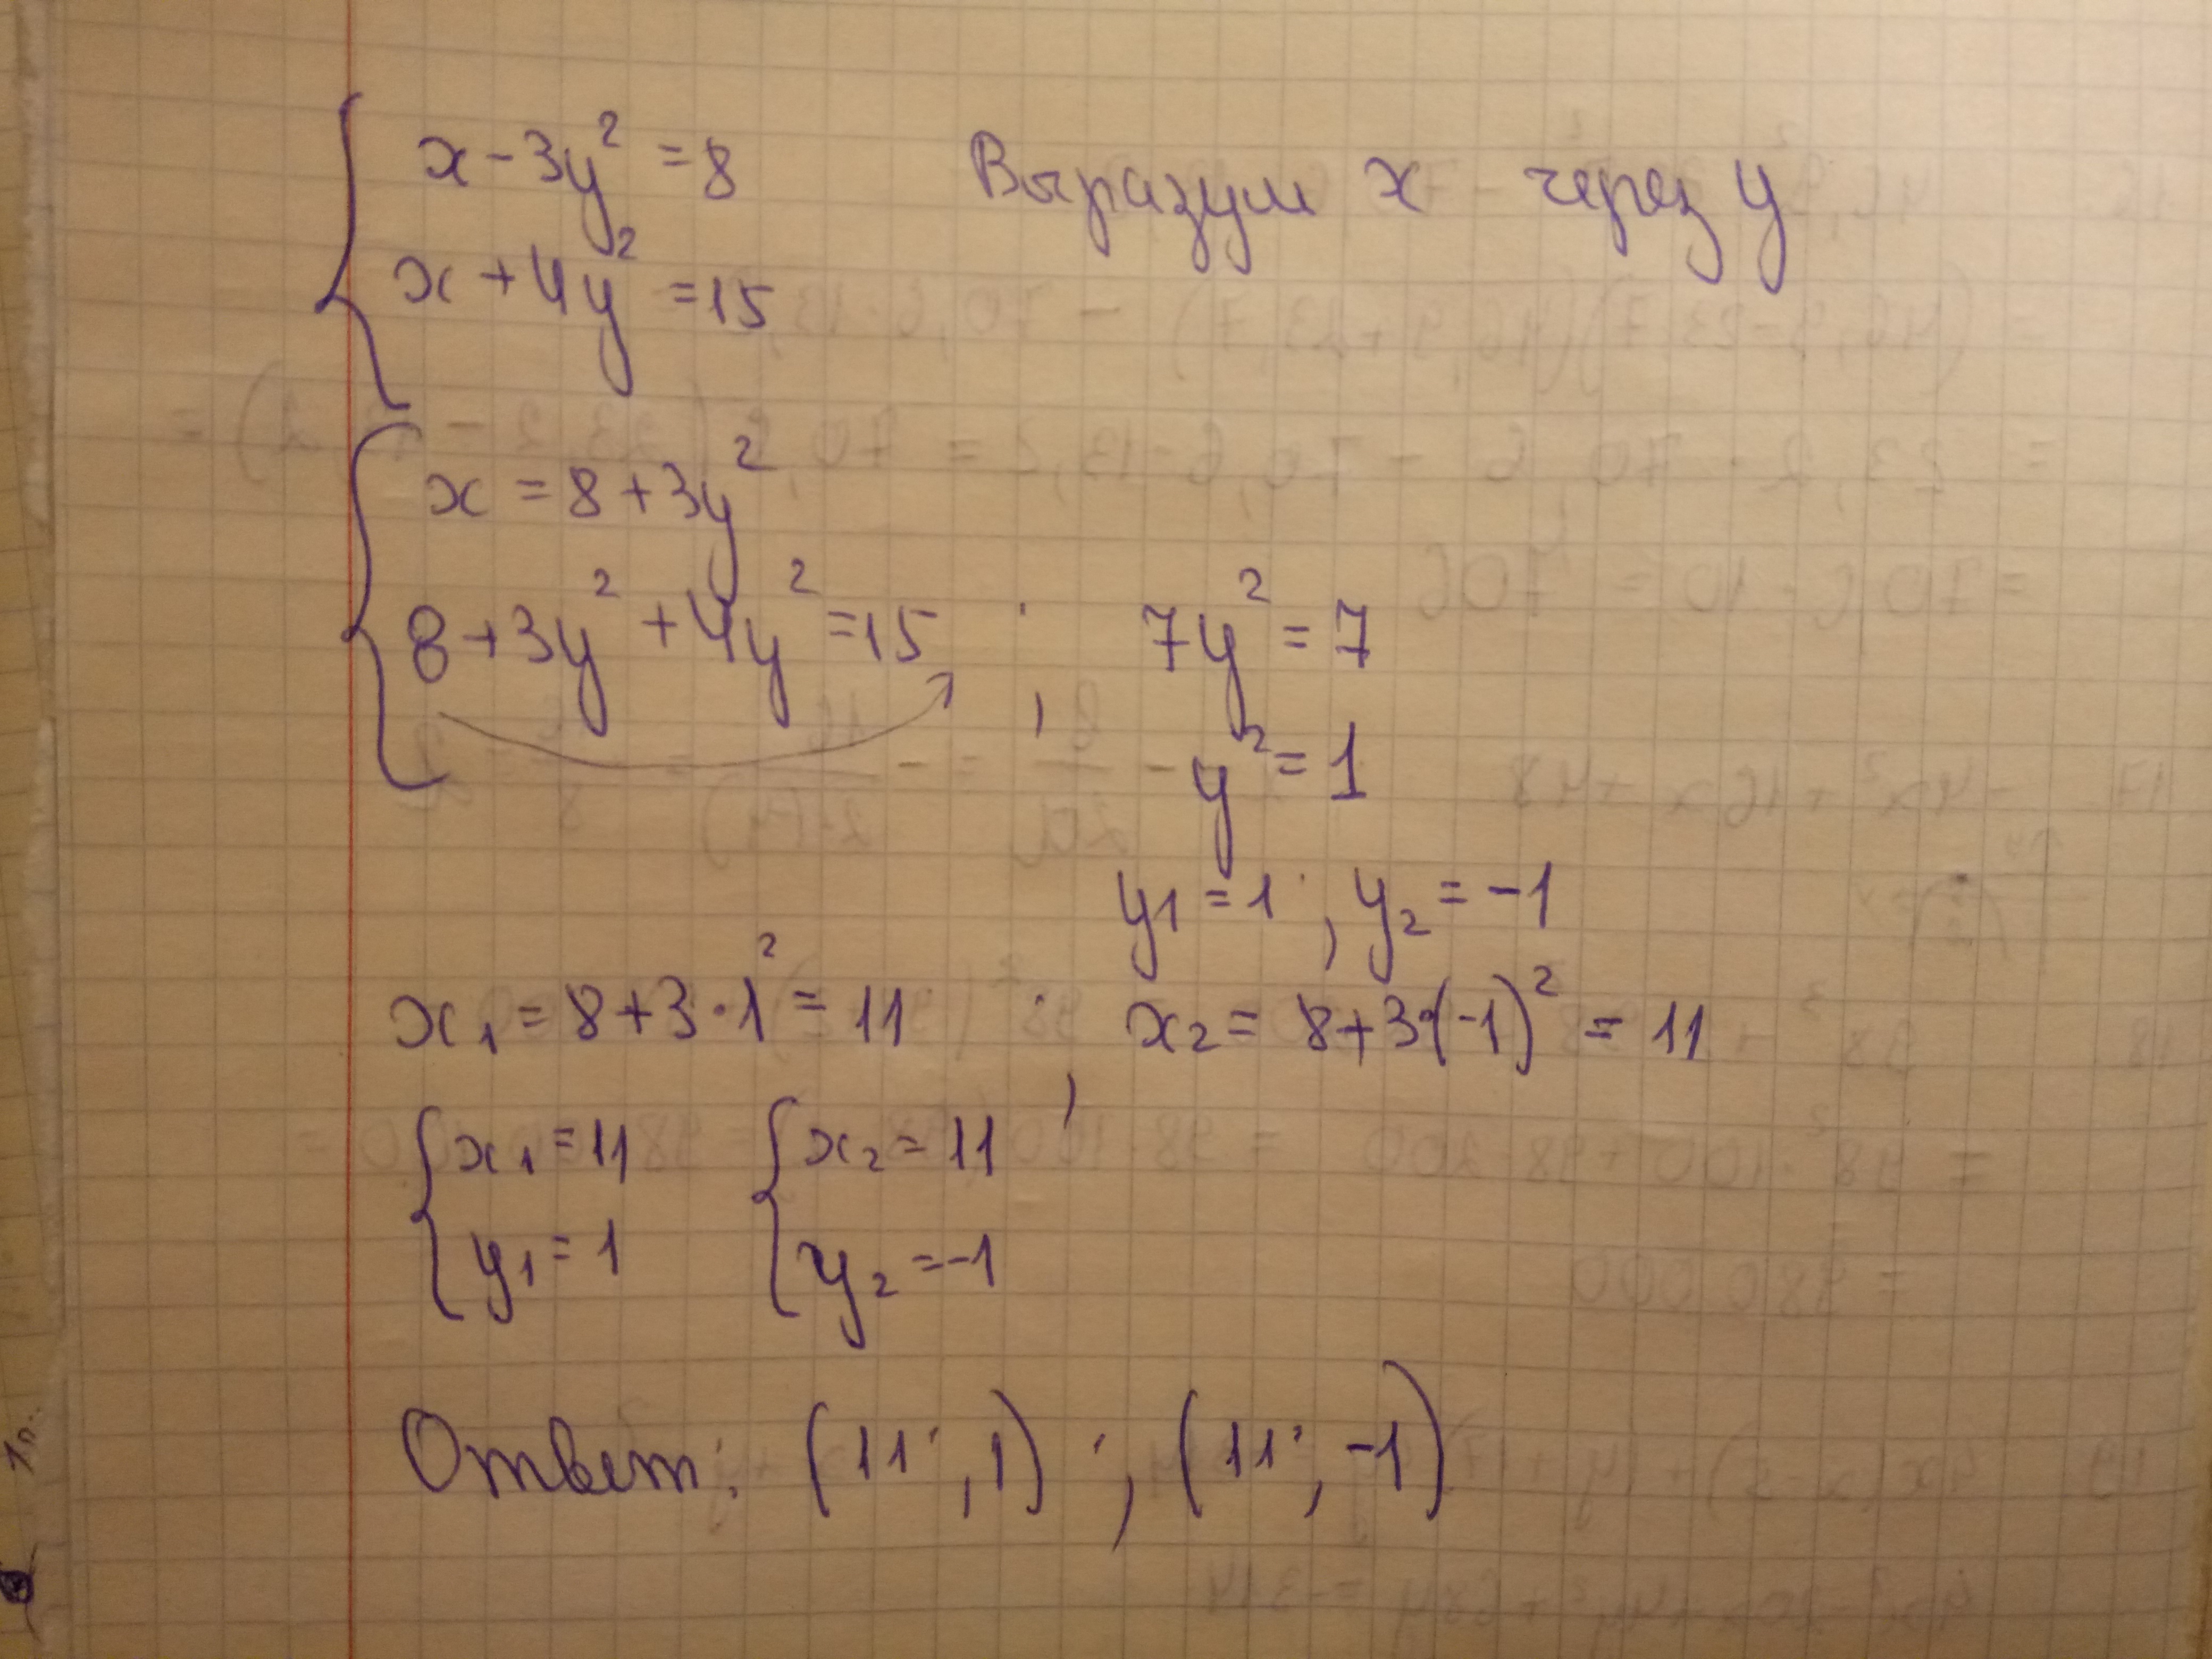 x - 3y² = 8 Выразим x через y
x + 4y² = 15
x = 8 + 3y²
8 + 3y² + 4y² = 15 ; 7y² = 7
y² = 1
y₁ = 1 ; y₂ = -1
x₁ = 8 + 3 · 1² = 11 ; x₂ = 8 + 3 · (-1)² = 11
x₁ = 11 x₂ = 11
y₁ = 1 y₂ = -1
Ответ: (11 ; 1) ; (11 ; -1)